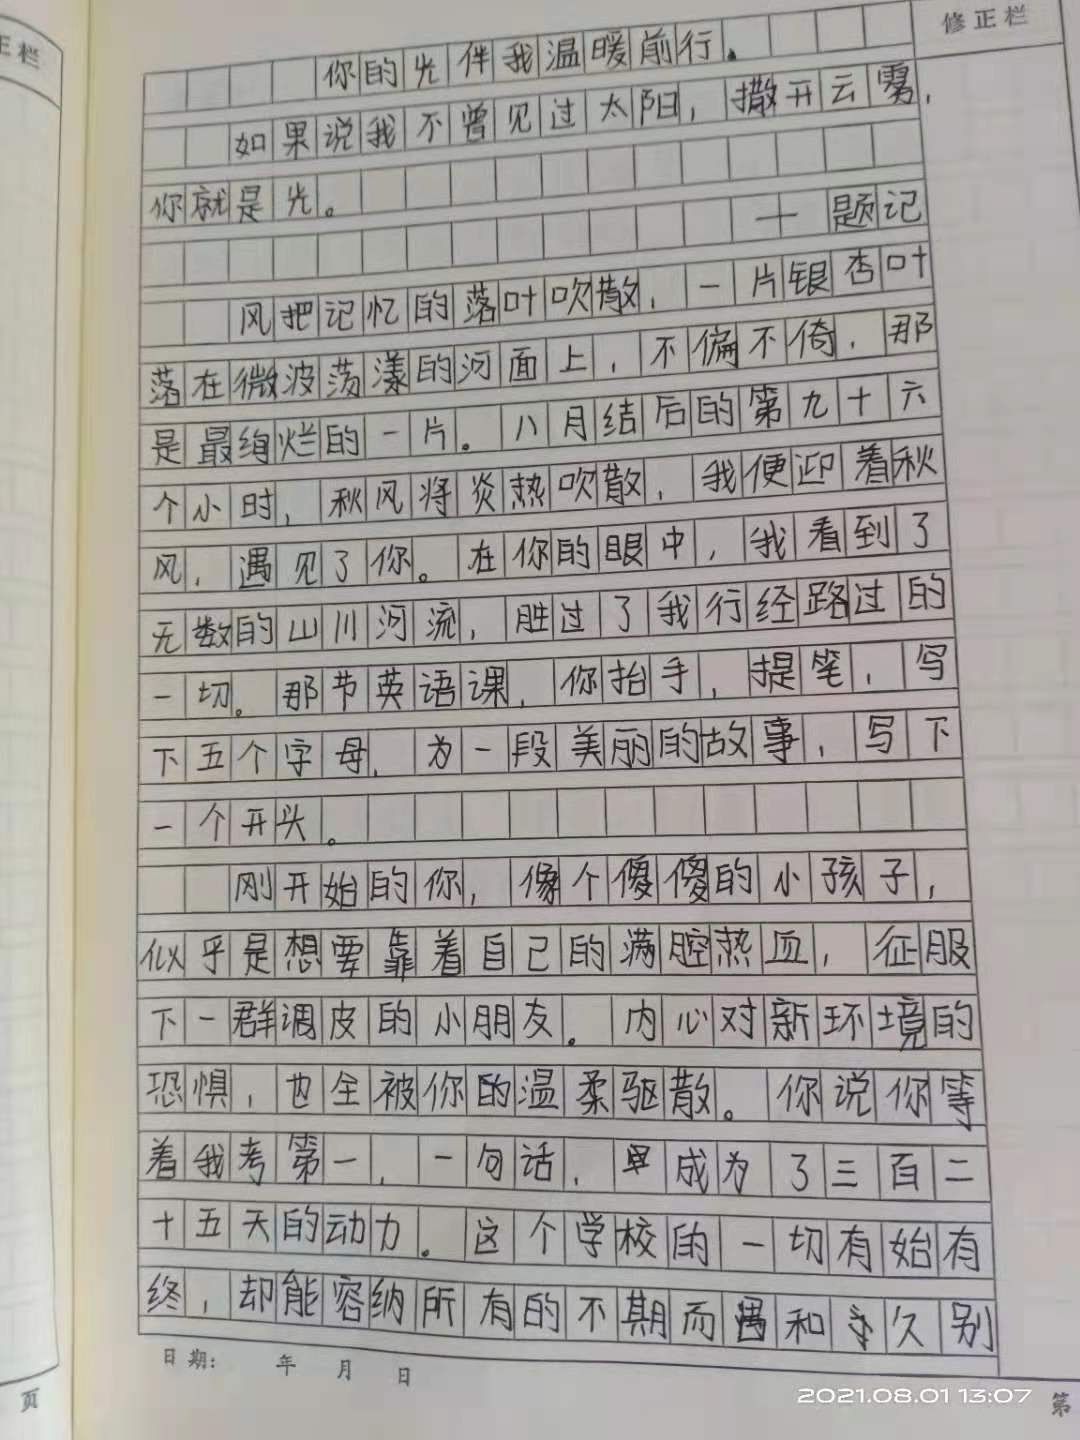 正栏
修正栏
你的光伴我温暖前行。
如果说我不曾见过太阳，撒开云雾，
你就是光。
一题记
风把记忆的落叶吹散，一片银杏叶
落在微波荡漾的河面上，不偏不倚，那
是最绚烂的一片。八月结后的第九十六
个小时，秋风将炎热吹散，我便迎着秋
风，遇见了你。在你的眼中，我看到了
无数的山川河流，胜过了我行经路过的
一切。那节英语课，你抬手，提笔，写
下五个字母，为一段美丽的故事，写下
一个开头。
刚开始的你，像个傻傻的小孩子，
似乎是想要靠着自己的满腔热血，征服
下一群调皮的小朋友。内心对新环境的
恐惧，也全被你的温柔驱散。你说你等
着我考第一，一句话，早成为了三百二
十五天的动力。这个学校的一切有始有
终，却能容纳所有的不期而遇和久别
日期： 年 月 日
页
第
2021.08.01 13:07